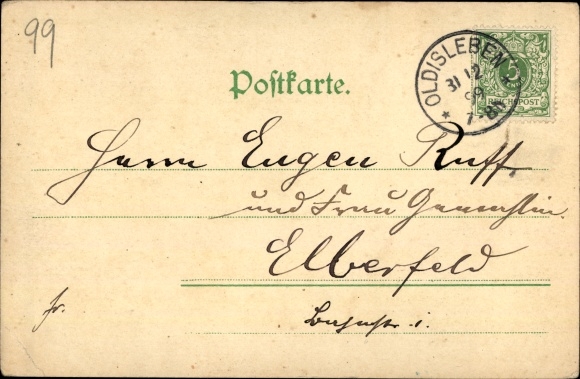 99
Postkarte.
OLDISLEBEN
31 12
99
7-8N
5
REICHSPOST
Herrn Eugen Ruff.
und Frau Gemahlin.
Elberfeld
fr.